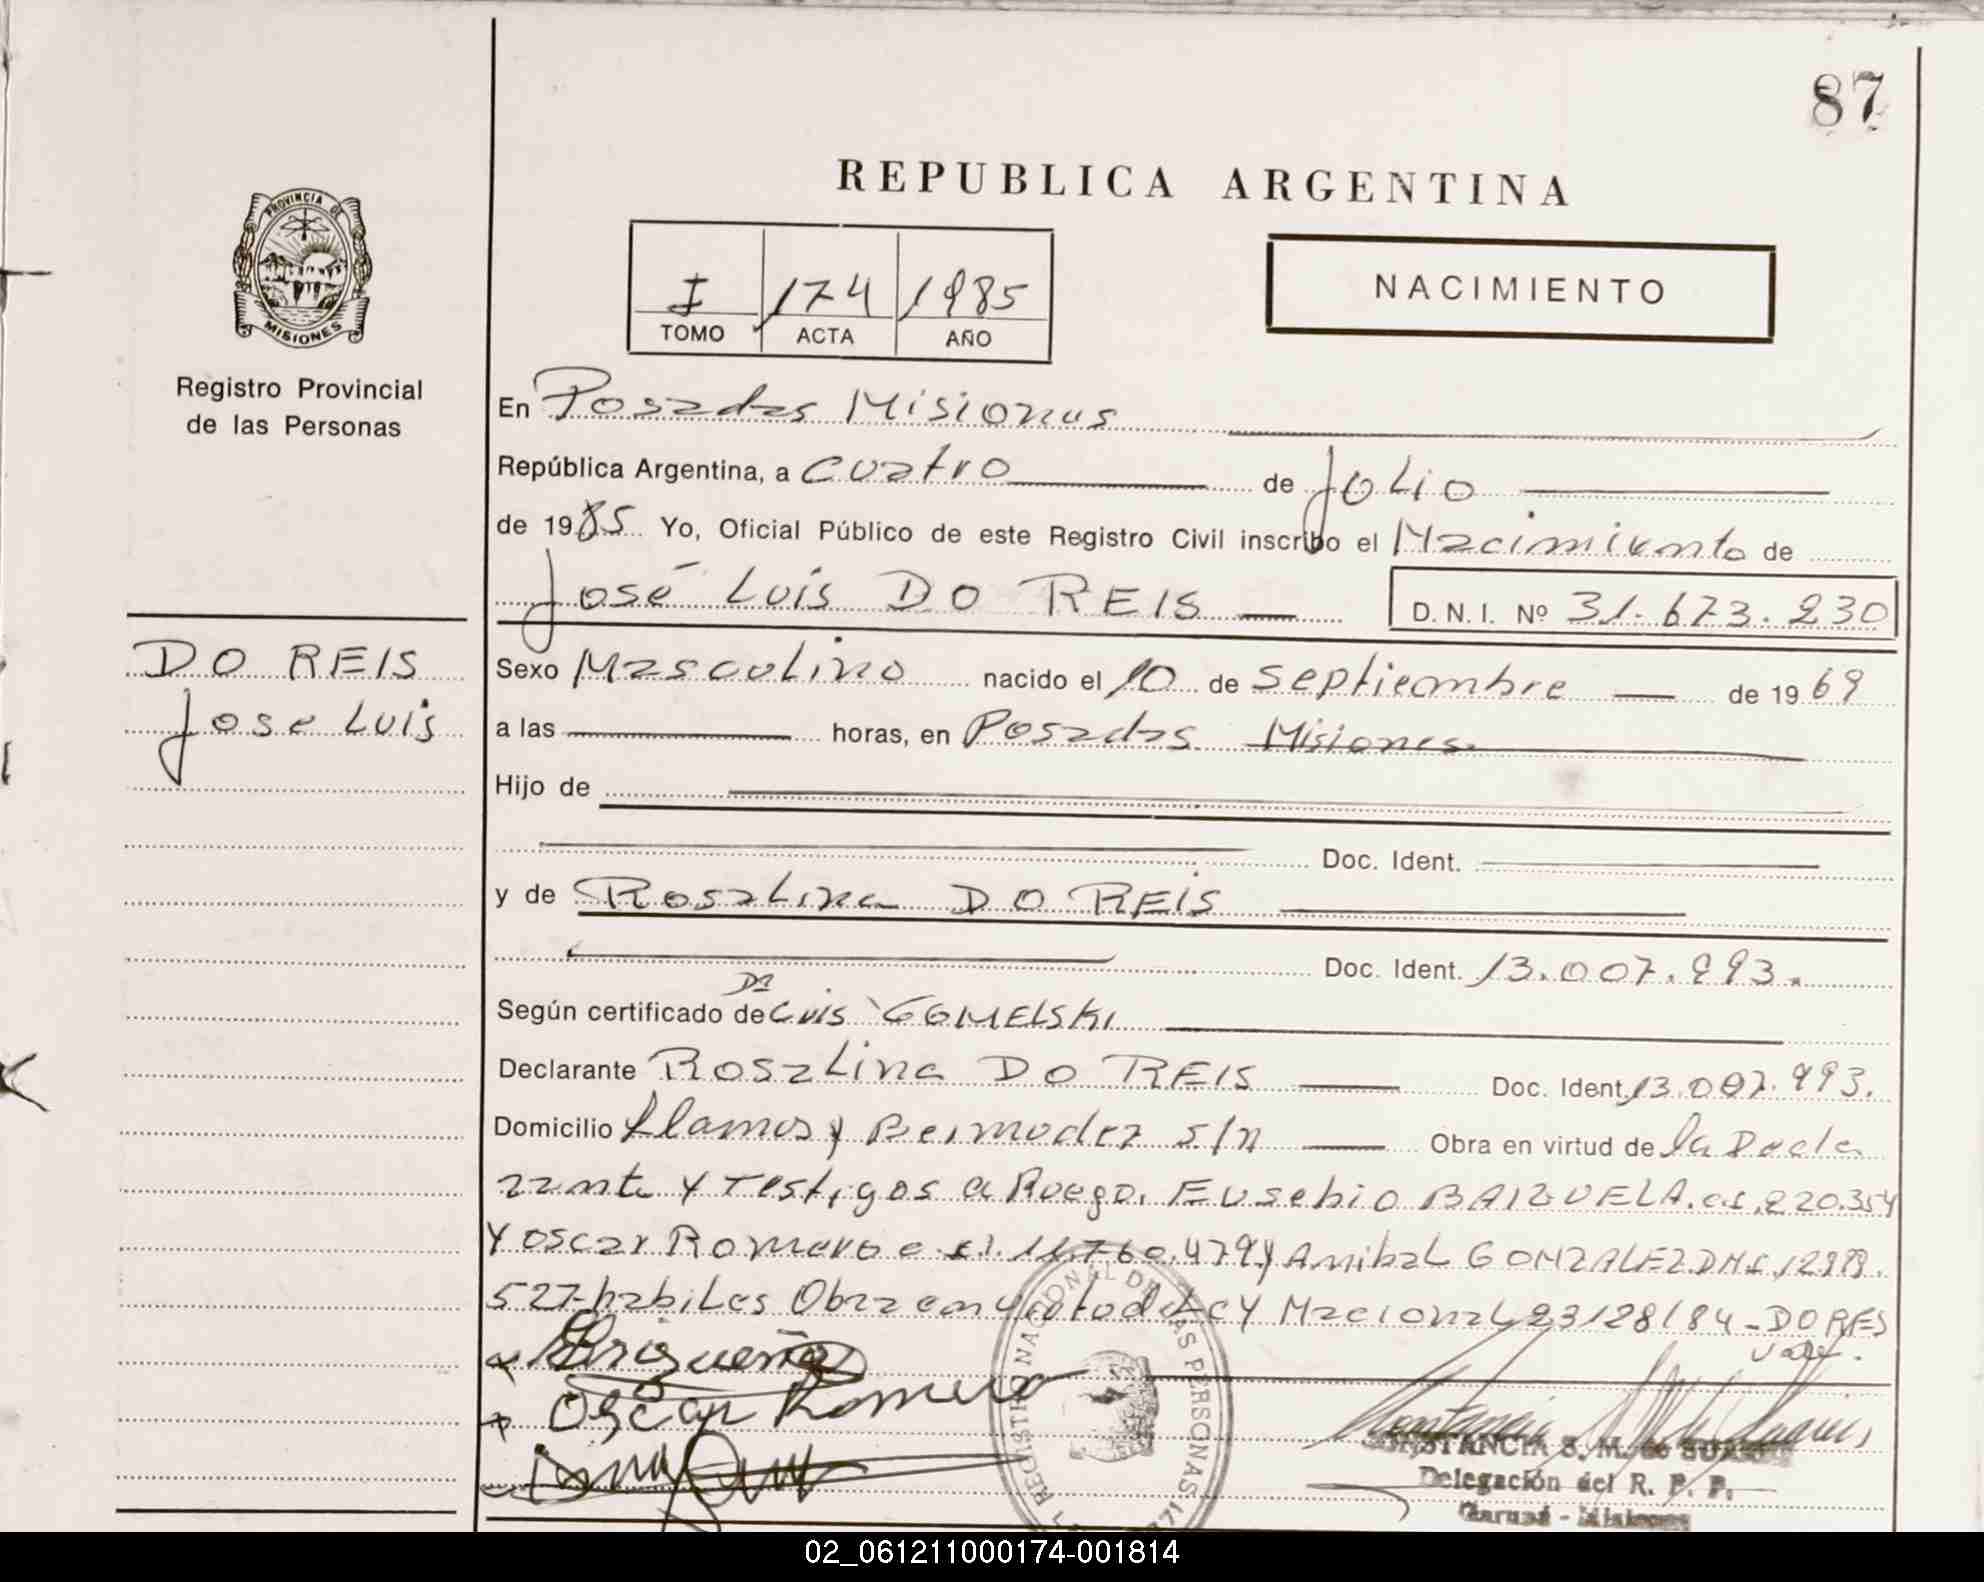 87
REPUBLICA ARGENTINA
PROVINCIA DE
MISIONES
Registro Provincial
de las Personas
I 174 1985
TOMO ACTA AÑO
NACIMIENTO
En Posadas Misiones
República Argentina, a cuatro de Julio
de 1985 Yo, Oficial Público de este Registro Civil inscribo el Nacimiento de
José Luis DO REIS D. N. I. Nº 31.673.230
DO REIS
Jose Luis
Sexo Masculino nacido el 10 de septiembre de 1969
a las horas, en Posadas Misiones
Hijo de
Doc. Ident.
y de Rosalina DO REIS
Doc. Ident. 13.007.993.
Dr
Según certificado de Luis GOMELSKI
Declarante Rosalina DO REIS Doc. Ident. 13.007.993.
Domicilio Llamos y Bermudez s/n Obra en virtud de la Decla
rante y Testigos a Ruego. Eusebio c.i. 220.354
Y Oscar Romero 11.760.479 y Anibal GONZALEZ DNI.
527- habiles Obra en de Ley Nacional 23128/84 - DO REIS
vale.
Oscar Romero
REGISTRO NACIONAL DE LAS PERSONAS
CONSTANCIA S. M. de
Delegación del R. P. P.
Garupá - Misiones
02_061211000174-001814